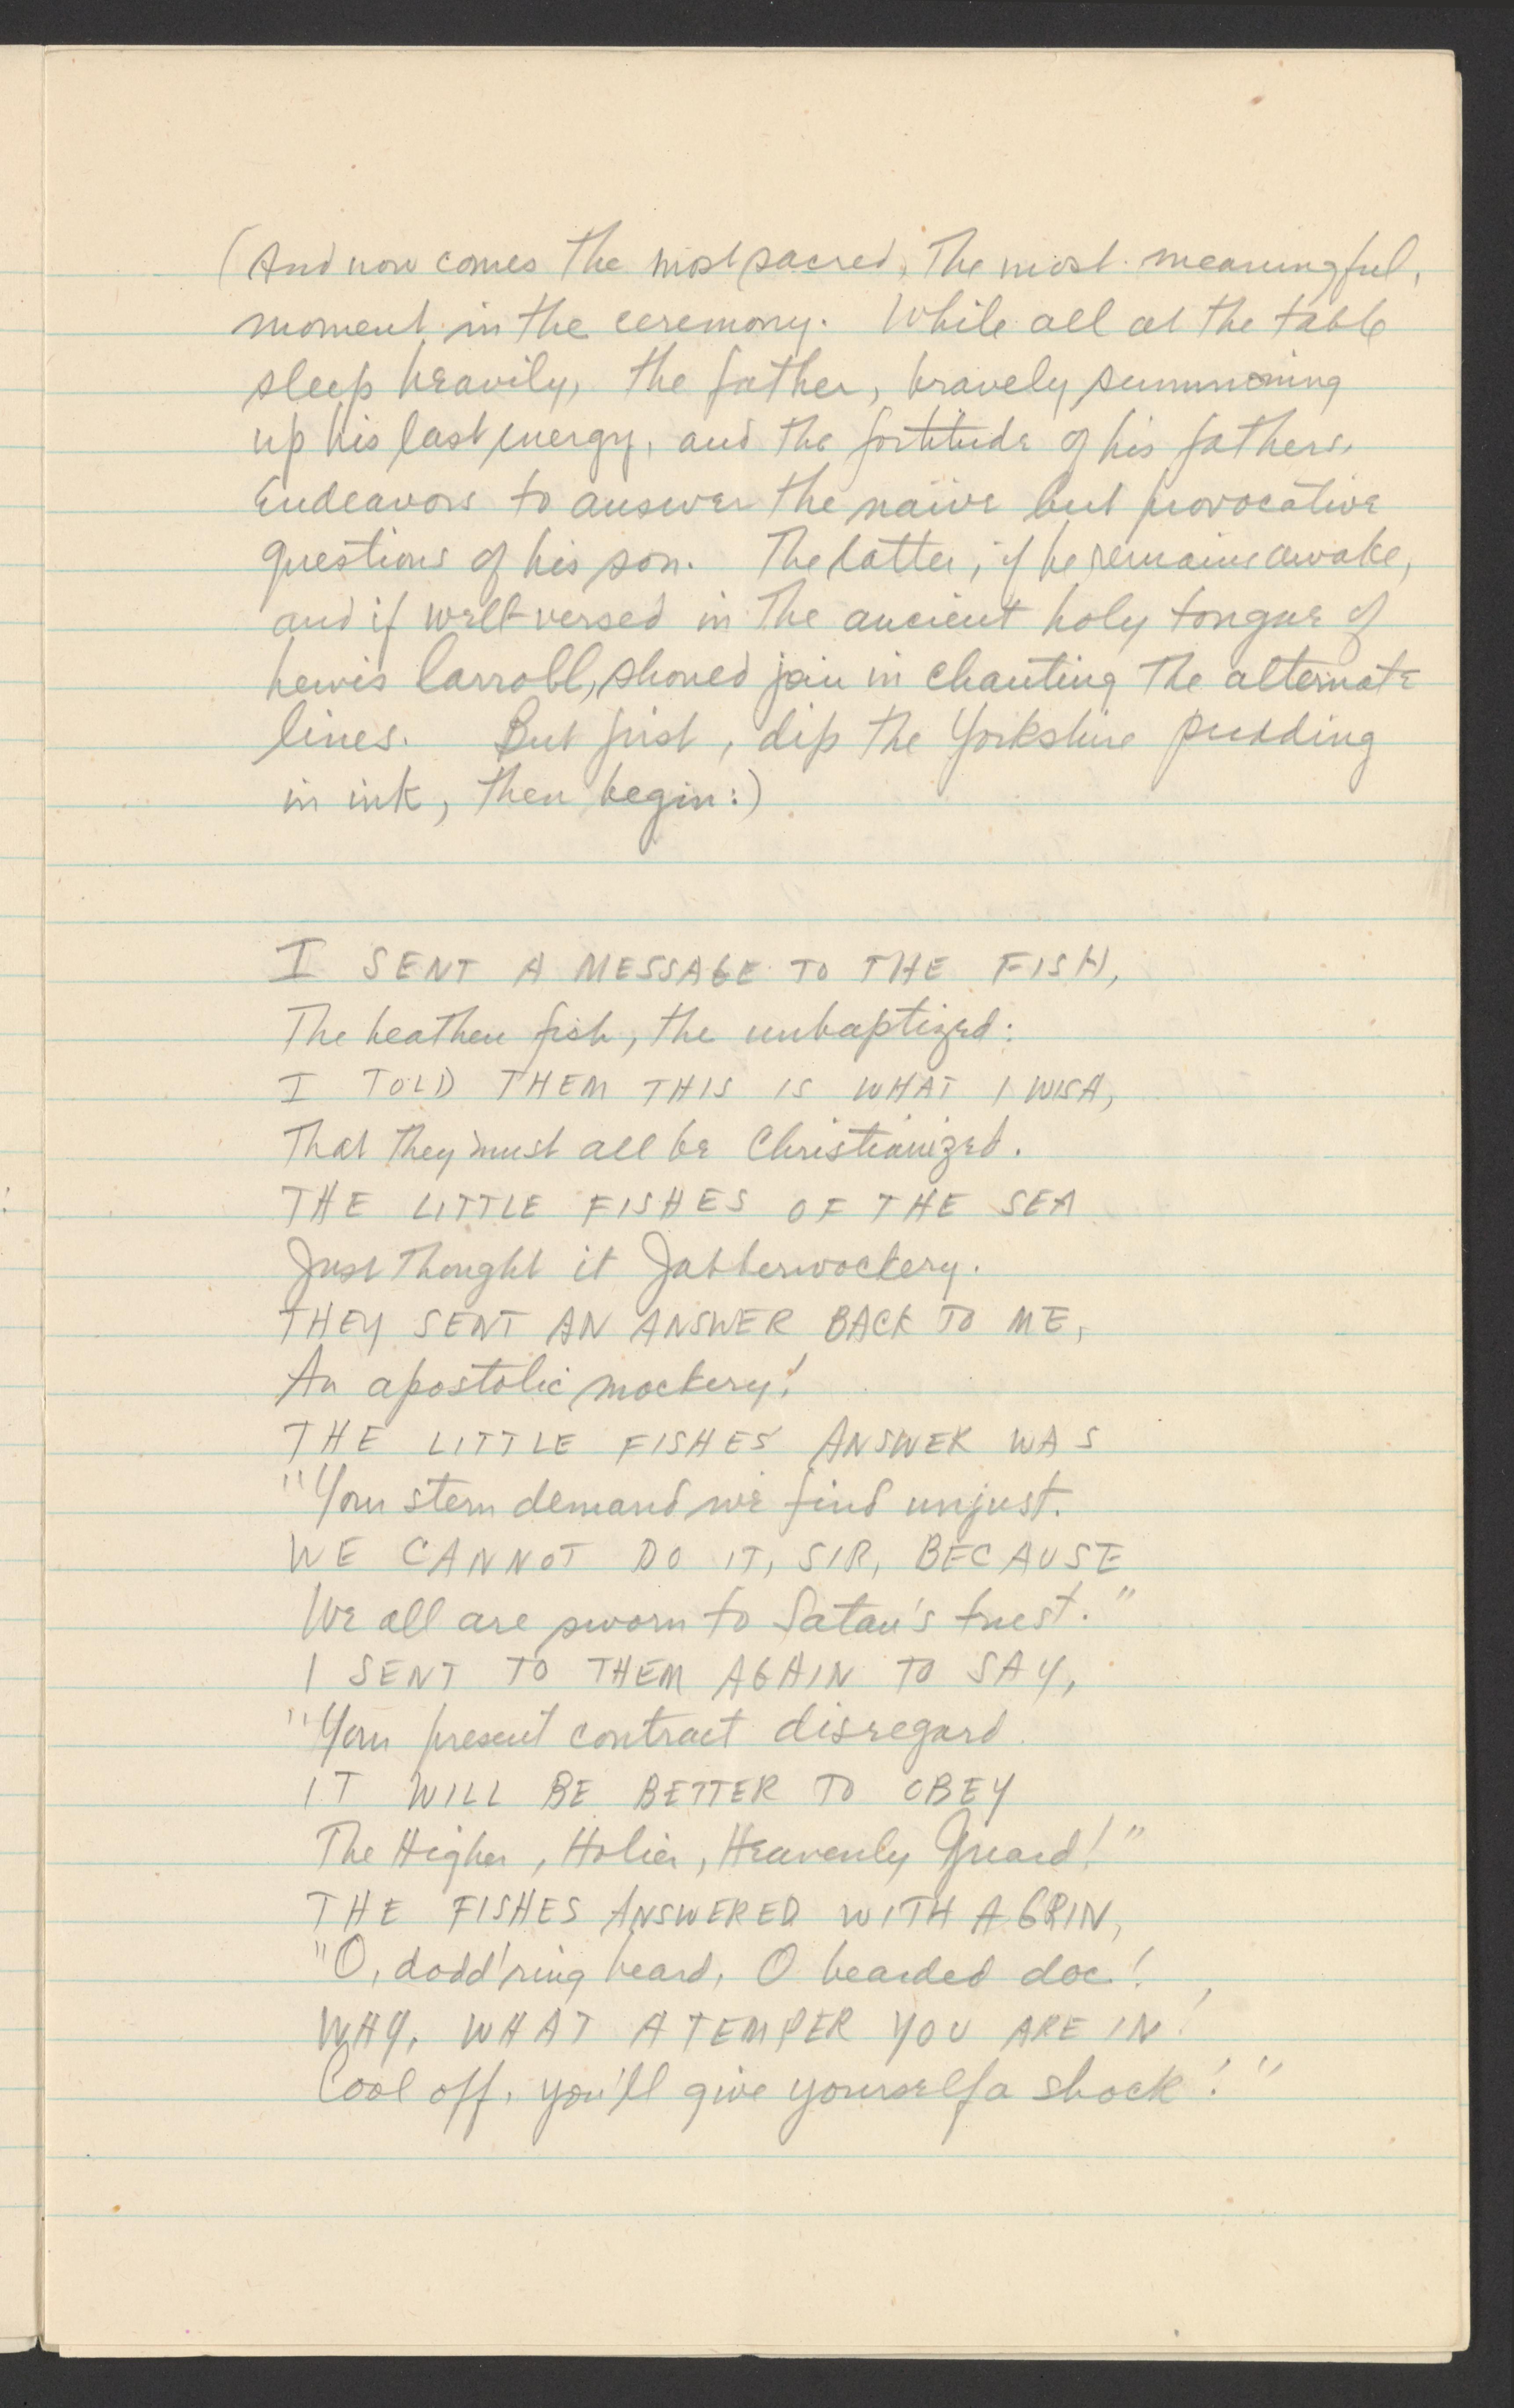 (And now comes the most sacred, the most meaningful,
moment in the ceremony. While all at the table
sleep heavily, the father, bravely summoning
up his last energy, and the fortitude of his fathers,
Endeavors to answer the naïve but provocative
questions of his son. The latter, if he remains awake,
and if well-versed in the ancient holy tongue of
Lewis Carroll, should join in chanting the alternate
lines. But first, dip the Yorkshire pudding
in ink, then begin:)
I SENT A MESSAGE TO THE FISH,
The heathen fish, the unbaptized:
I TOLD THEM THIS IS WHAT I WISH,
That they must all be Christianized.
THE LITTLE FISHES OF THE SEA
Just thought it Jabberwockery.
THEY SENT AN ANSWER BACK TO ME,
An apostolic mockery!
THE LITTLE FISHES' ANSWER WAS
"Your stern demand we find unjust.
WE CANNOT DO IT, SIR, BECAUSE
We all are sworn to Satan's trust."
I SENT TO THEM AGAIN TO SAY,
"Your present contract disregard.
IT WILL BE BETTER TO OBEY
The Higher, Holier, Heavenly Guard!"
THE FISHES ANSWERED WITH A GRIN,
"O, dodd'ring beard, O bearded doc!
WHY, WHAT A TEMPER YOU ARE IN!
Cool off, you'll give yourself a shock!"